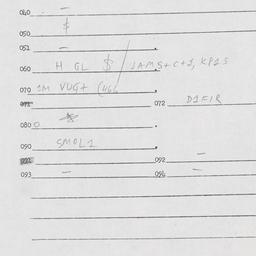 040 –
050 $
051 –
060 H GL $ / JAMS+C+1, KP1S
070 1M VUG+ (466
071 072 D1F1R
080
090 SMOL1
092 –
093 – 096 –